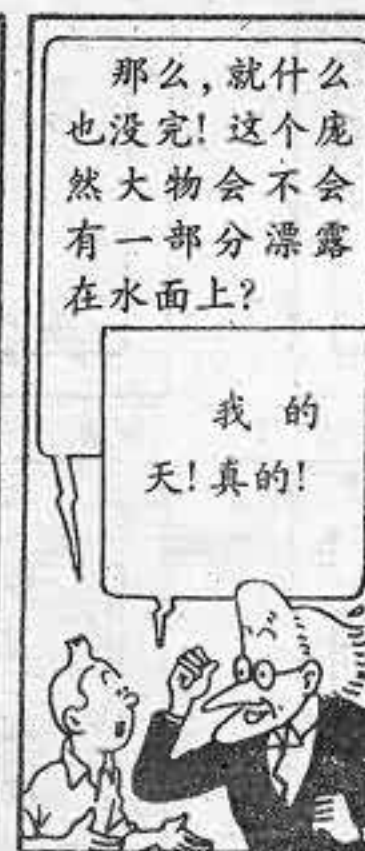 那么,就什么
也没完!这个庞
然大物会不会
有一部分漂露
在水面上?
我的
天!真的!